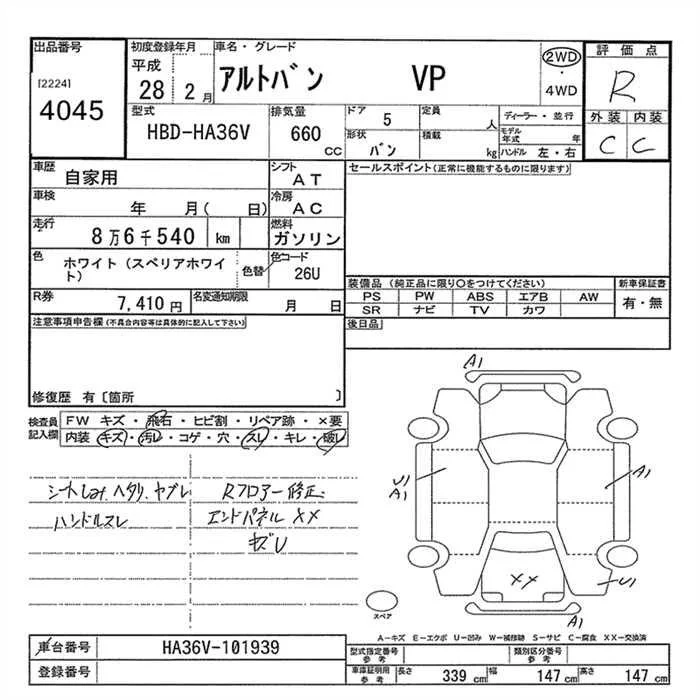 出品番号
[2224]
4045
初度登録年月
平成
28 2月
車名・グレード
アルトバン VP
2WD
・
4WD
評価点
R
外装 内装
C C
型式
HBD-HA36V
排気量
660
CC
ドア
5
定員
人
形状
バン
積載
kg
ディーラー・並行
モデル年式 年
ハンドル 左・右
車歴
自家用
シフト
AT
セールスポイント(正常に機能するものに限ります)
車検
年 月( 日)
冷房
AC
走行
8万6千540 km
燃料
ガソリン
色
ホワイト(スペリアホワイト)
色替
色コード
26U
R券
7,410円
名変通知期限
月 日
装備品(純正品に限り○をつけてください)
PS PW ABS エアB AW
SR ナビ TV カワ
新車保証書
有・無
後日品
注意事項申告欄(不具合内容等は具体的に記入して下さい)
修復歴 有〔箇所 〕
検査員記入欄
FW キズ・飛石・ヒビ割・リペア跡・×要
内装 キズ・汚レ・コゲ・穴・スレ・キレ・破レ
ヘタリ、ヤブレ
ハンドルスレ
Rフロアー修正
エンドパネル XX
A1
U1
A1
A1
XX
U1
A1
スペア
A-キズ E-エクボ U-凹み W-補修跡 S-サビ C-腐食 XX-交換済
車台番号
HA36V-101939
登録番号
型式指定番号
参考
類別区分番号
参考
車庫証明用
参考
長さ 339 cm
幅 147 cm
高さ 147 cm